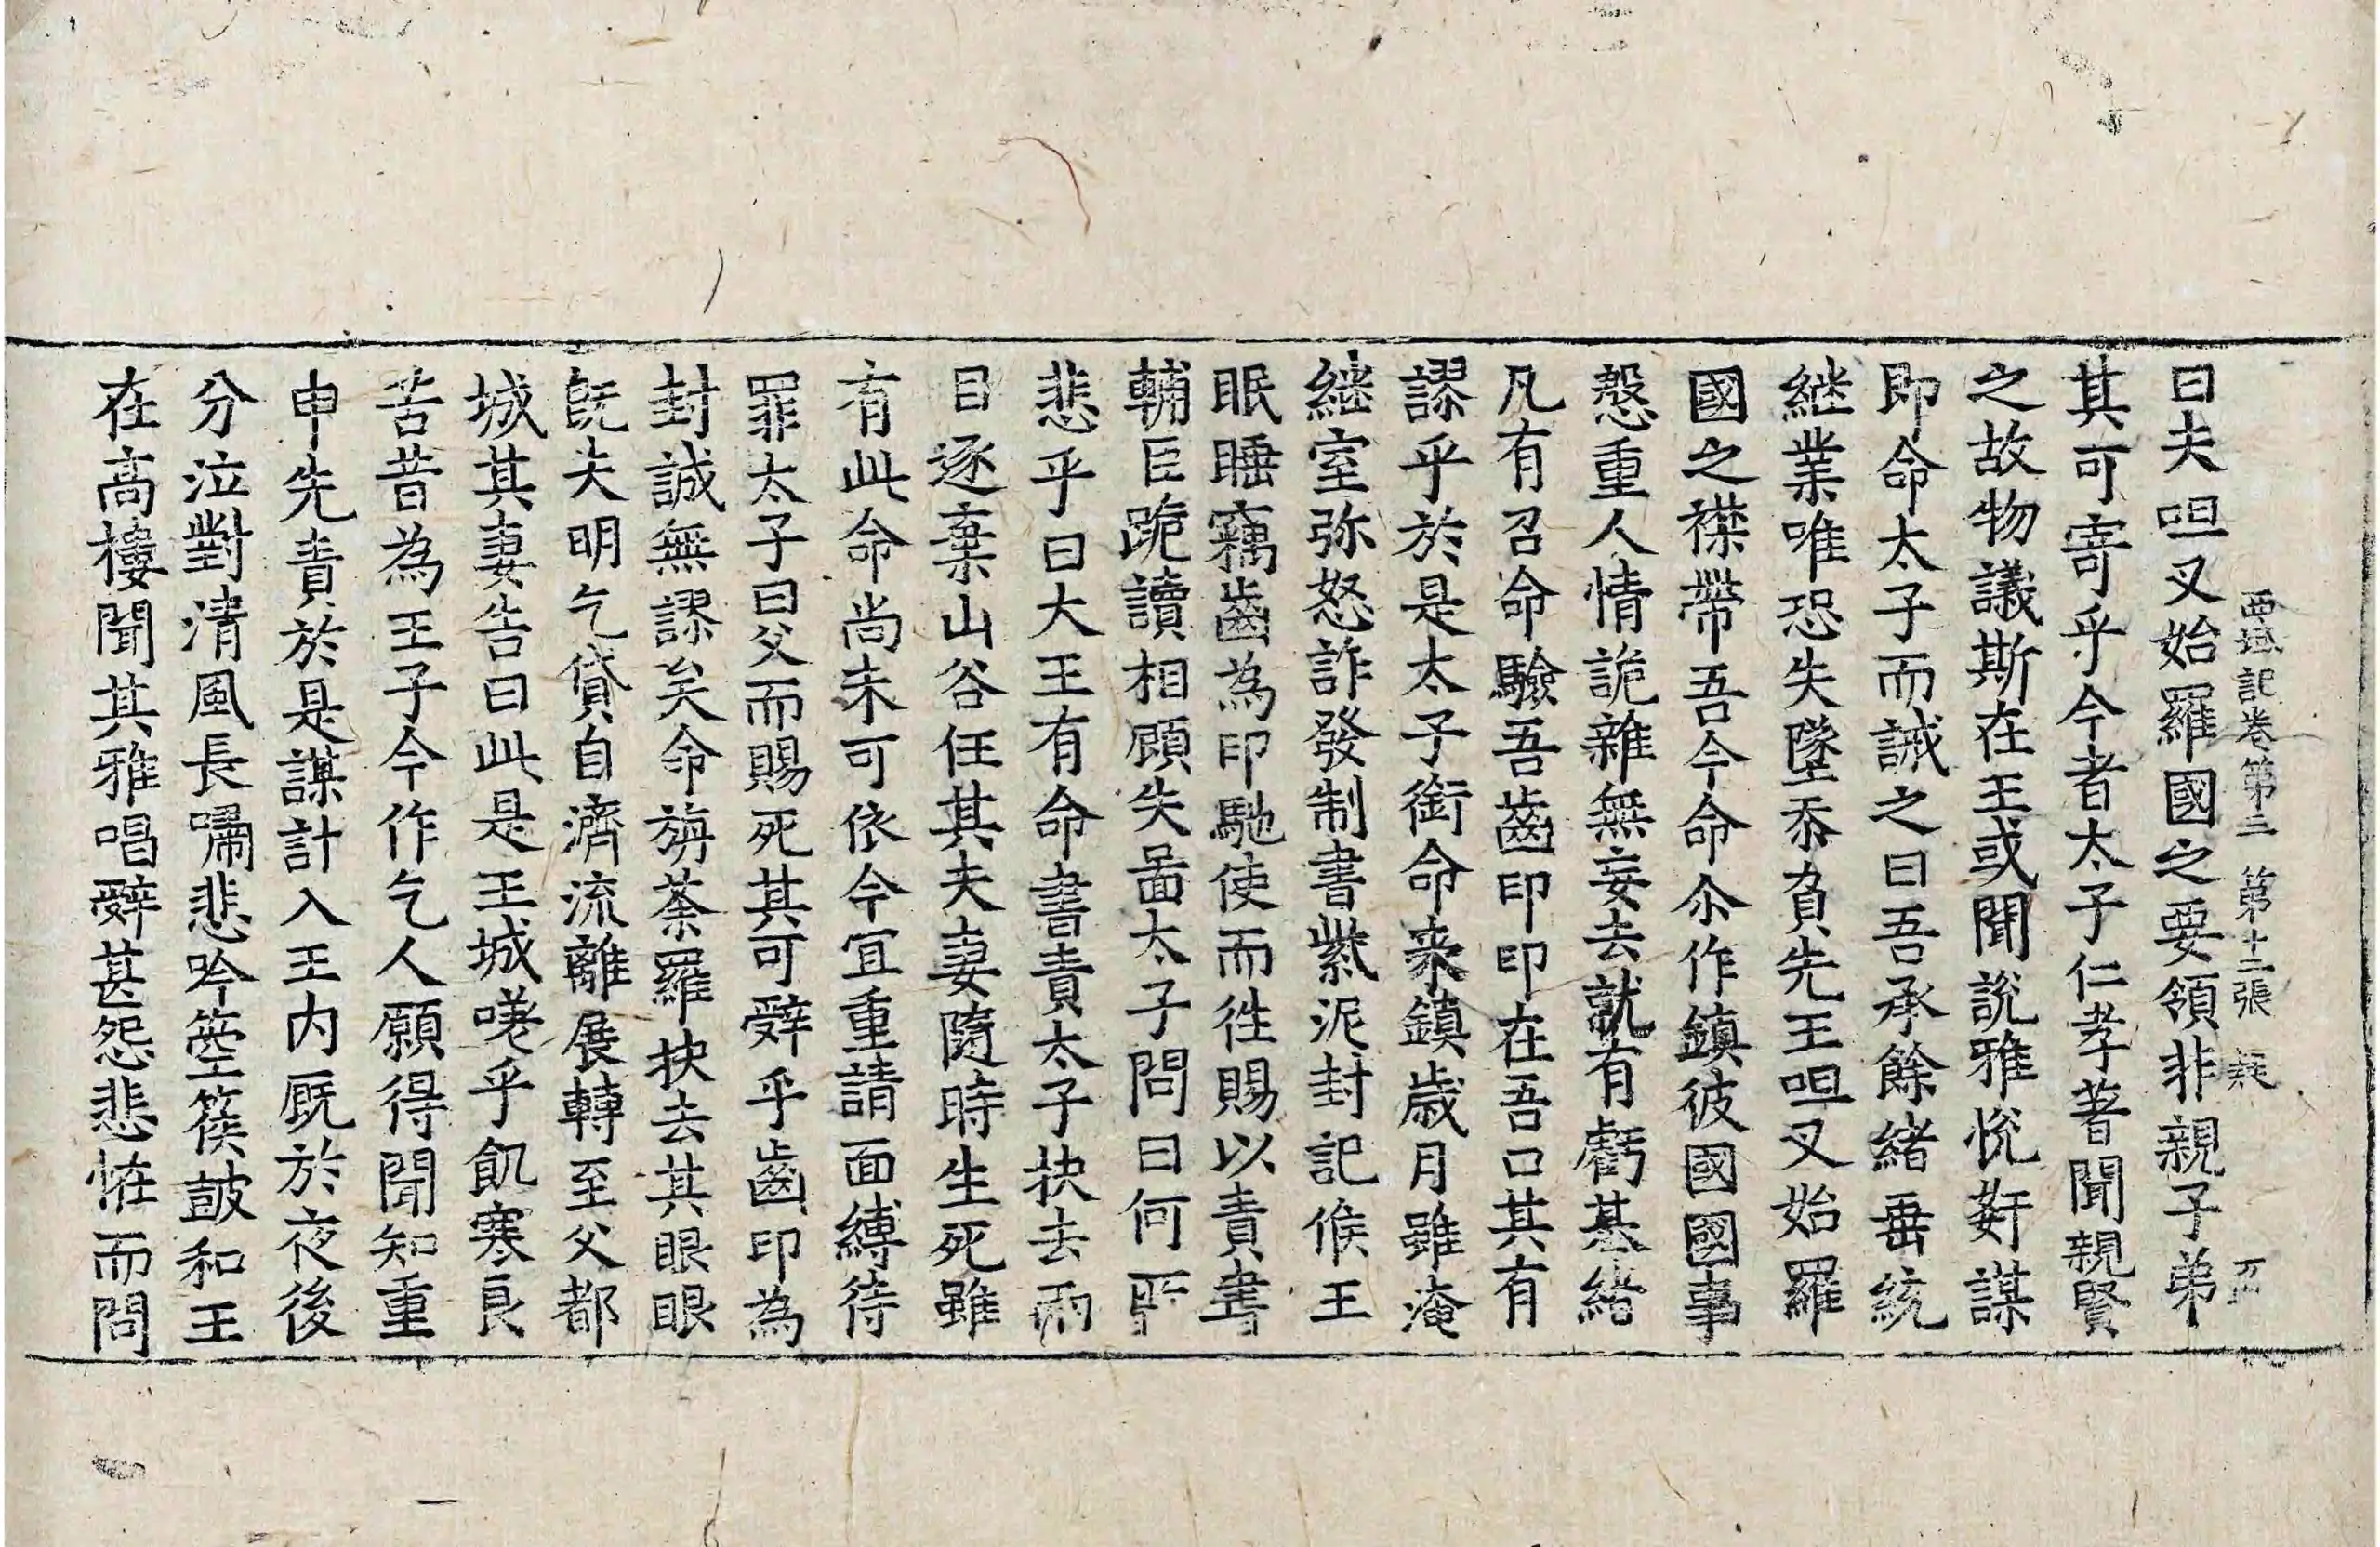 西域記卷第三 第十二張 疑
曰夫呾叉始羅國之要領非親子弟
其可寄乎今者太子仁孝著聞親賢
之故物議斯在王或聞說雅悅姧謀
即命太子而誡之曰吾承餘緒垂統
継業唯恐失墜忝負先王呾叉始羅
國之襟帶吾今命尒作鎮彼國國事
慇重人情詭雜無妄去就有虧基緒
凡有召命驗吾齒印印在吾口其有
謬乎於是太子銜命来鎮歲月雖淹
継室弥怒詐發制書紫泥封記候王
眠睡竊齒為印馳使而徃賜以責書
輔臣跪讀相顧失啚太子問曰何所
悲乎曰大王有命書責太子抉去兩
目逐棄山谷任其夫妻隨時生死雖
有此命尚未可依今宜重請面縛待
罪太子曰父而賜死其可辝乎齒印為
封誠無謬矣命旃荼羅抉去其眼眼
旣失明乞貸自濟流離展轉至父都
城其妻告曰此是王城嗟乎飢寒良
苦昔為王子今作乞人願得聞知重
申先責於是謀計入王内厩於夜後
分泣對清風長嘯悲吟箜篌鼓和王
在高樓聞其雅唱辝甚怨悲恠而問